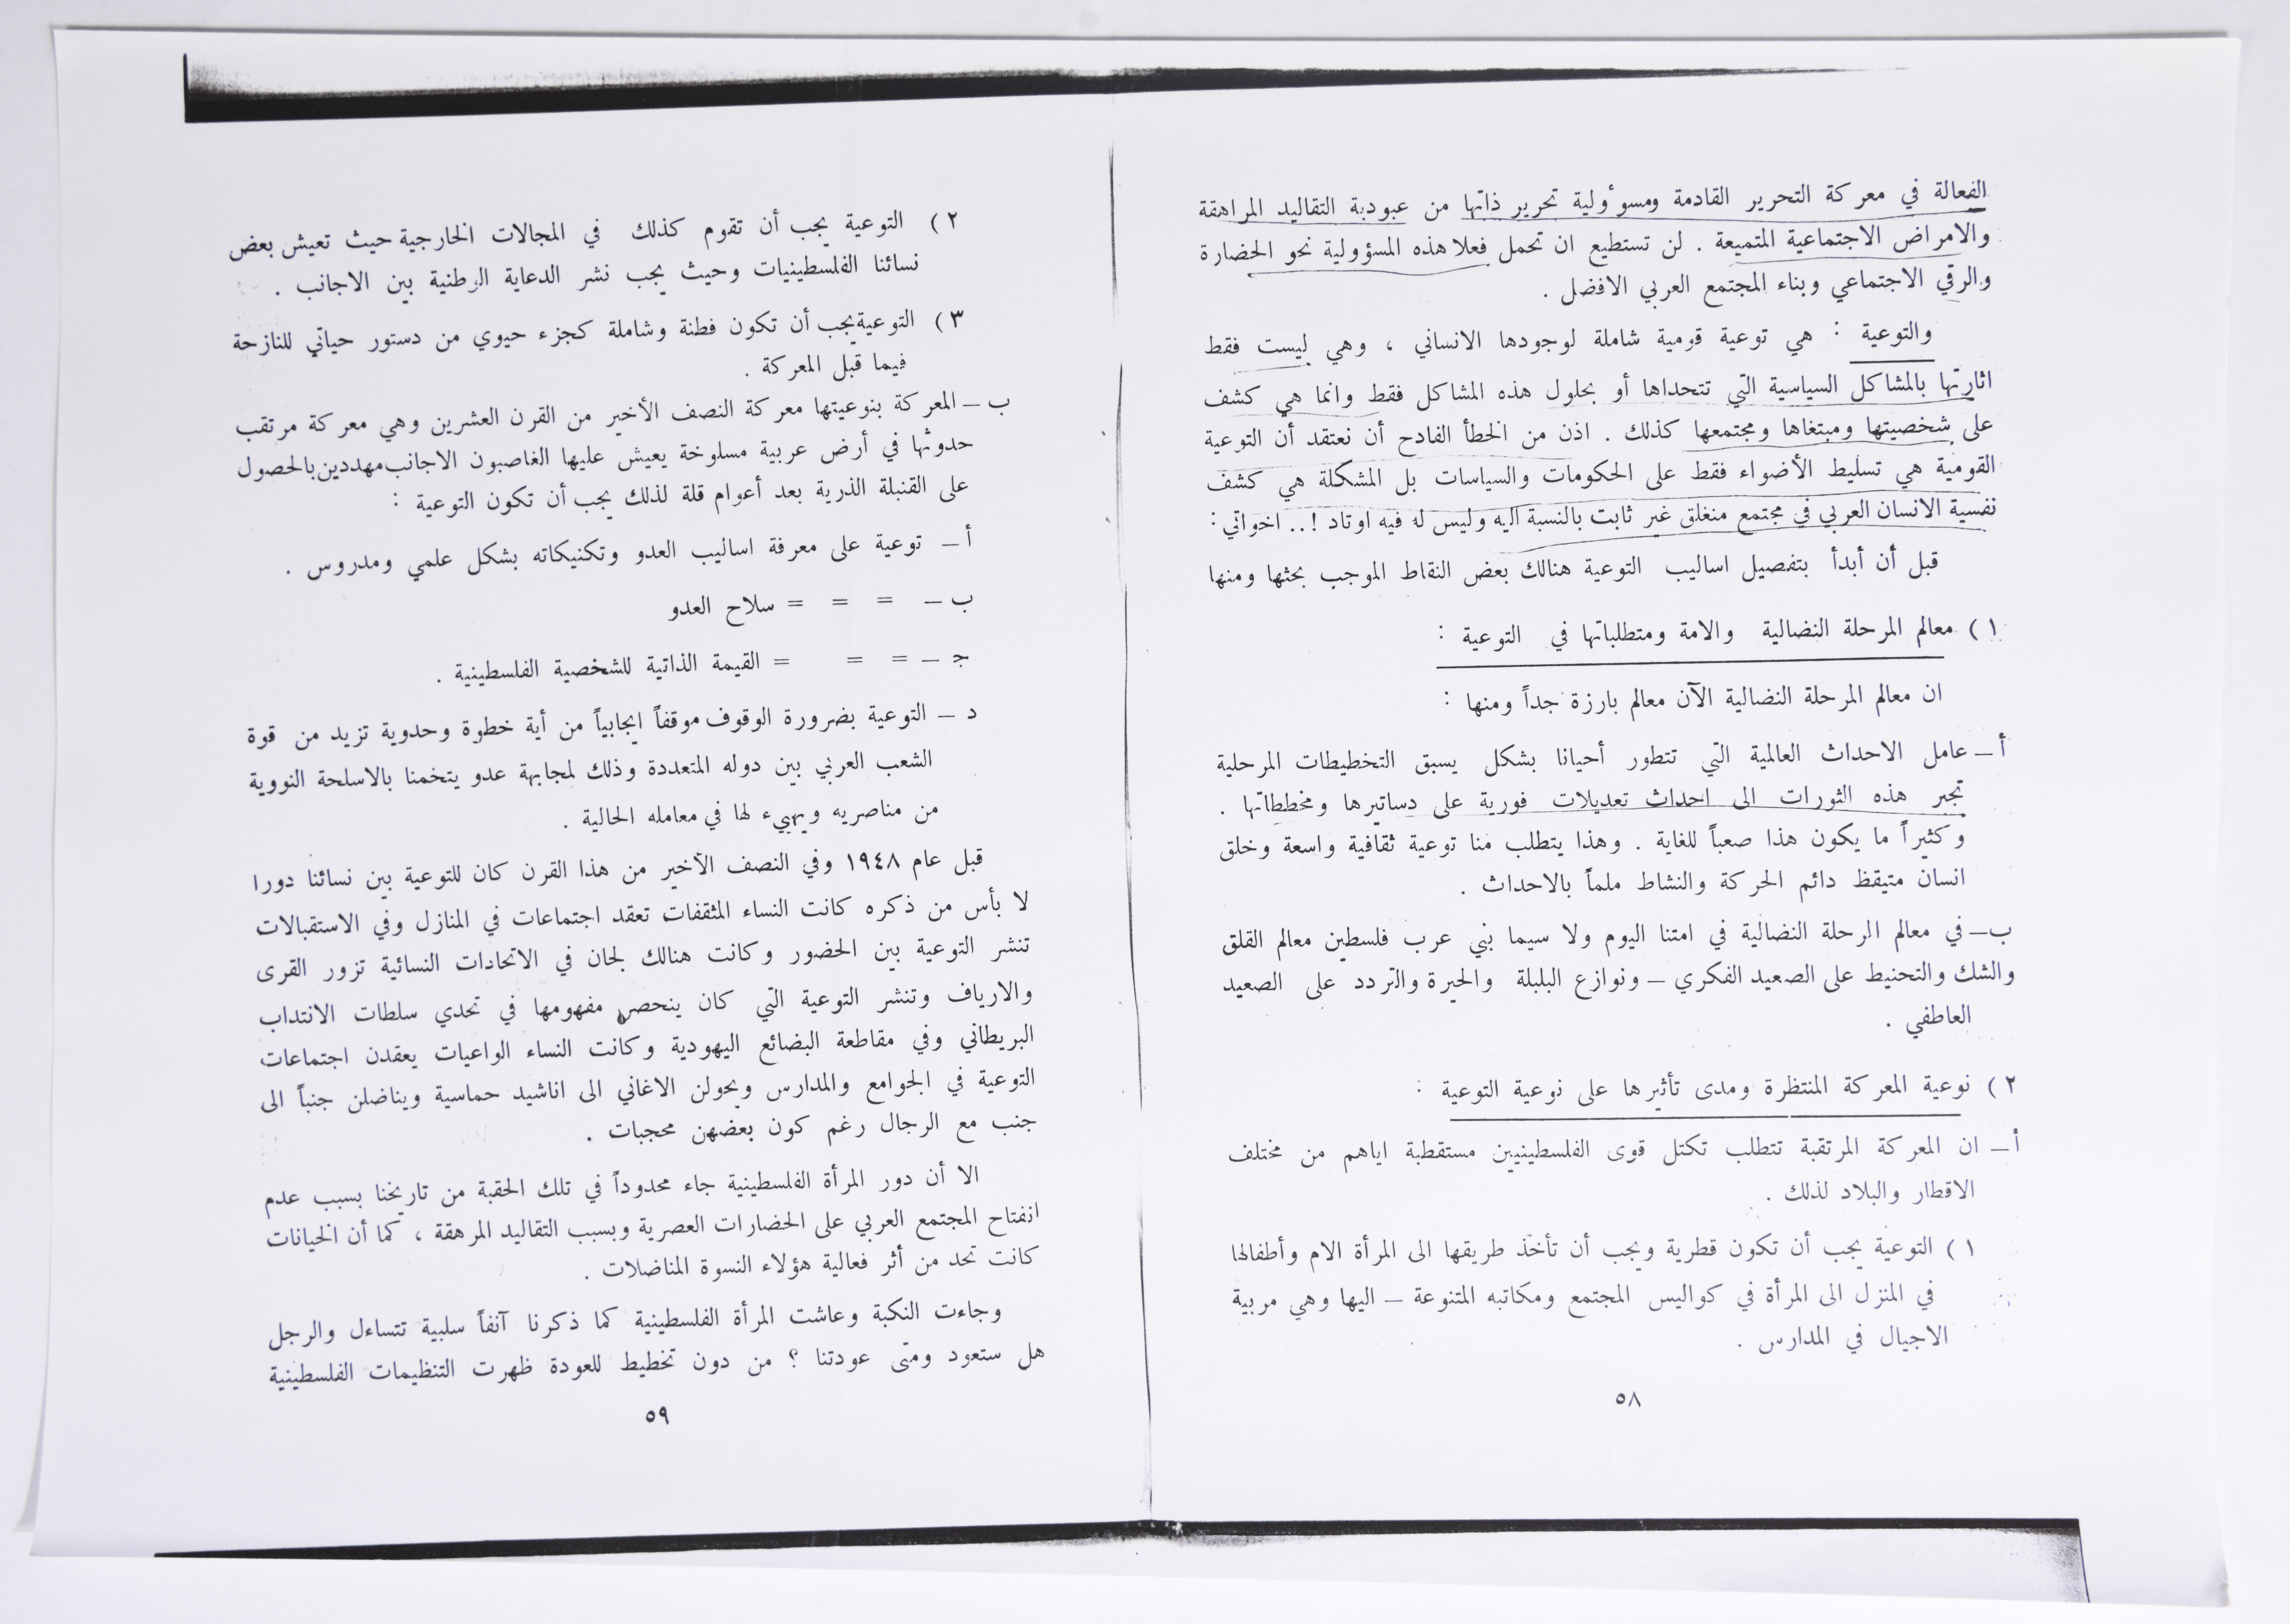 الفعالة في معركة التحرير القادمة ومسوؤلية تحرير ذاتها من عبودية التقاليد المراهقة
والامراض الاجتماعية المتميعة . لن تستطيع ان تحمل فعلا هذه المسؤولية نحو الحضارة
والرقي الاجتماعي وبناء المجتمع العربي الافضل .
والتوعية : هي توعية قومية شاملة لوجودها الانساني ، وهي ليست فقط
اثارتها بالمشاكل السياسية التي تتحداها أو بحلول هذه المشاكل فقط وانما هي كشف
على شخصيتها ومبتغاها ومجتمعها كذلك . اذن من الخطأ الفادح أن نعتقد أن التوعية
القومية هي تسليط الأضواء فقط على الحكومات والسياسات بل المشكلة هي كشف
نفسية الانسان العربي في مجتمع منغلق غير ثابت بالنسبة اليه وليس له فيه اوتاد !.. اخواتي :
قبل أن أبدأ بتفصيل اساليب التوعية هنالك بعض النقاط الموجب بحثها ومنها
١ ) معالم المرحلة النضالية والامة ومتطلباتها في التوعية :
ان معالم المرحلة النضالية الآن معالم بارزة جداً ومنها :
أ – عامل الاحداث العالمية التي تتطور أحيانا بشكل يسبق التخطيطات المرحلية
تجبر هذه الثورات الى احداث تعديلات فورية على دساتيرها ومخططاتها .
وكثيراً ما يكون هذا صعباً للغاية . وهذا يتطلب منا توعية ثقافية واسعة وخلق
انسان متيقظ دائم الحركة والنشاط ملماً بالاحداث .
ب – في معالم الرحلة النضالية في امتنا اليوم ولا سيما بني عرب فلسطين معالم القلق
والشك والتحنيط على الصعيد الفكري – ونوازع البلبلة والحيرة والتردد على الصعيد
العاطفي .
٢ ) نوعية المعركة المنتظرة ومدى تأثيرها على نوعية التوعية :
أ – ان المعركة المرتقبة تتطلب تكتل قوى الفلسطينيين مستقطبة اياهم من مختلف
الاقطار والبلاد لذلك .
١ ) التوعية يجب أن تكون قطرية ويجب أن تأخذ طريقها الى المرأة الام وأطفالها
في المنزل الى المرأة في كواليس المجتمع ومكاتبه المتنوعة – اليها وهي مربية
الاجيال في المدارس .
٥٨
٢ ) التوعية يجب أن تقوم كذلك في المجالات الخارجية حيث تعيش بعض
نسائنا الفلسطينيات وحيث يجب نشر الدعاية الوطنية بين الاجانب .
٣ ) التوعية يجب أن تكون فطنة وشاملة كجزء حيوي من دستور حياتي للنازحة
فيما قبل المعركة .
ب – المعركة بنوعيتها معركة النصف الأخير من القرن العشرين وهي معركة مرتقب
حدوثها في أرض عربية مسلوخة يعيش عليها الغاصبون الاجانب مهددين بالحصول
على القنبلة الذرية بعد أعوام قلة لذلك يجب أن تكون التوعية :
أ – توعية على معرفة اساليب العدو وتكنيكاته بشكل علمي ومدروس .
ب – = = = سلاح العدو
ج – = = = القيمة الذاتية للشخصية الفلسطينية .
د – التوعية بضرورة الوقوف موقفاً ايجابياً من أية خطوة وحدوية تزيد من قوة
الشعب العربي بين دوله المتعددة وذلك لمجابهة عدو يتخمنا بالاسلحة النووية
من مناصريه ويهيء لها في معامله الحالية .
قبل عام ١٩٤٨ وفي النصف الأخير من هذا القرن كان للتوعية بين نسائنا دورا
لا بأس من ذكره كانت النساء المثقفات تعقد اجتماعات في المنازل وفي الاستقبالات
تنشر التوعية بين الحضور وكانت هنالك لجان في الاتحادات النسائية تزور القرى
والارياف وتنشر التوعية التي كان ينحصر مفهومها في تحدي سلطات الانتداب
البريطاني وفي مقاطعة البضائع اليهودية وكانت النساء الواعيات يعقدن اجتماعات
التوعية في الجوامع والمدارس ويحولن الاغاني الى اناشيد حماسية ويناضلن جنباً الى
جنب مع الرجال رغم كون بعضهن محجبات .
الا أن دور المرأة الفلسطينية جاء محدوداً في تلك الحقبة من تاريخنا بسبب عدم
انفتاح المجتمع العربي على الحضارات العصرية وبسبب التقاليد المرهقة ، كما أن الخيانات
كانت تحد من أثر فعالية هؤلاء النسوة المناضلات .
وجاءت النكبة وعاشت المرأة الفلسطينية كما ذكرنا آنفاً سلبية تتساءل والرجل
هل ستعود ومتى عودتنا ؟ من دون تخطيط للعودة ظهرت التنظيمات الفلسطينية
٥٩